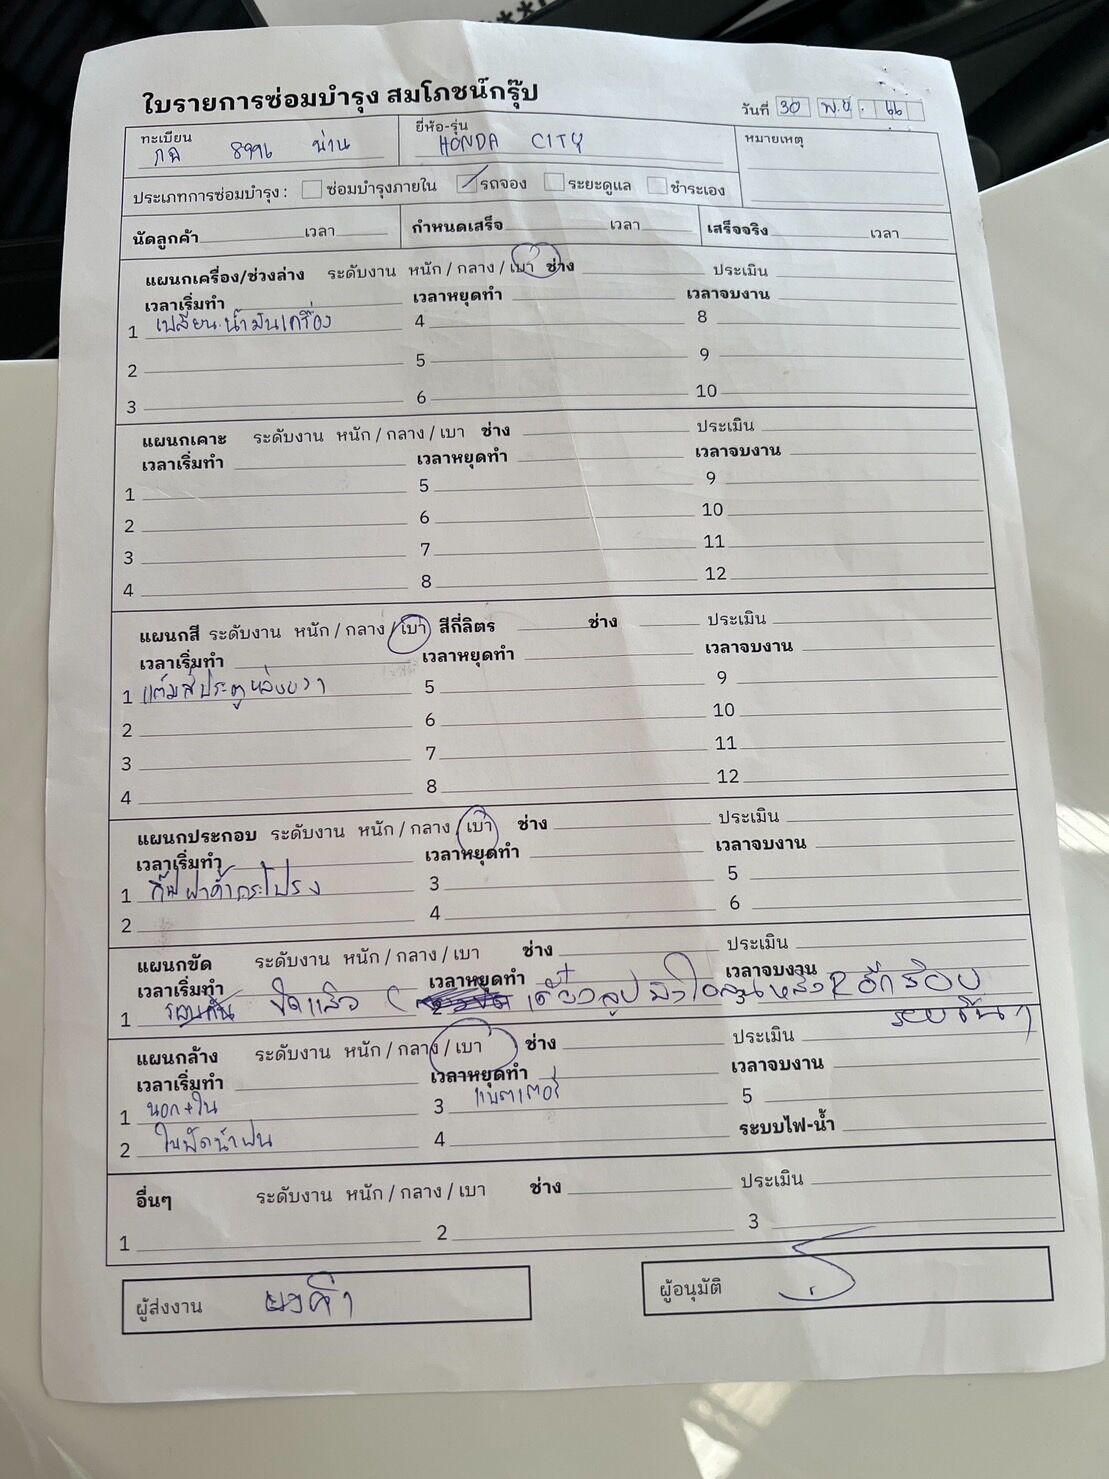 ใบรายการซ่อมบำรุง สมโภชน์กรุ๊ป
วันที่ 30 พ.ย. 66
ทะเบียน ยี่ห้อ-รุ่น หมายเหตุ
8996 น่าน HONDA CITY
ประเภทการซ่อมบำรุง : ซ่อมบำรุงภายใน รถจอง ระยะดูแล ชำระเอง
นัดลูกค้า เวลา กำหนดเสร็จ เวลา เสร็จจริง เวลา
แผนกเครื่อง/ช่วงล่าง ระดับงาน หนัก / กลาง / เบา ช่าง ประเมิน
เวลาเริ่มทำ เวลาหยุดทำ เวลาจบงาน
1 เปลี่ยนน้ำมันเครื่อง 4 8
2 5 9
3 6 10
แผนกเคาะ ระดับงาน หนัก / กลาง / เบา ช่าง ประเมิน
เวลาเริ่มทำ เวลาหยุดทำ เวลาจบงาน
1 5 9
2 6 10
3 7 11
4 8 12
แผนกสี ระดับงาน หนัก / กลาง / เบา สีกี่ลิตร ช่าง ประเมิน
เวลาเริ่มทำ เวลาหยุดทำ เวลาจบงาน
1 แต้มสีประตูหลังขวา 5 9
2 6 10
3 7 11
4 8 12
แผนกประกอบ ระดับงาน หนัก / กลาง / เบา ช่าง ประเมิน
เวลาเริ่มทำ เวลาหยุดทำ เวลาจบงาน
1 กิ๊ฟฝาค้ำกระโปรง 3 5
2 4 6
แผนกขัด ระดับงาน หนัก / กลาง / เบา ช่าง ประเมิน
เวลาเริ่มทำ เวลาหยุดทำ เวลาจบงาน
1 ขัดแล้ว อีกรอบ
แผนกล้าง ระดับงาน หนัก / กลาง / เบา ช่าง ประเมิน
เวลาเริ่มทำ เวลาหยุดทำ เวลาจบงาน
1 นอก+ใน 3 แบตเตอรี่ 5
2 ใบปัดน้ำฝน 4 ระบบไฟ-น้ำ
อื่นๆ ระดับงาน หนัก / กลาง / เบา ช่าง ประเมิน
1 2 3
ผู้ส่งงาน ผู้อนุมัติ